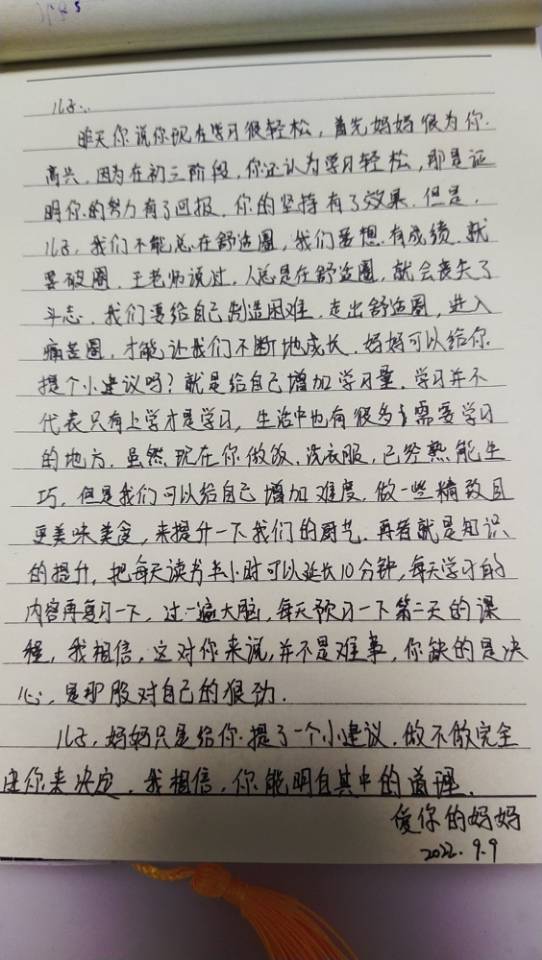 儿子:
昨天你说你现在学习很轻松,首先妈妈很为你
高兴,因为在初三阶段,你还认为学习轻松,那是证
明你的努力有了回报,你的坚持有了效果,但是,
儿子,我们不能总在舒适圈,我们要想有成绩,就
要破圈,王老师说过,人总是在舒适圈,就会丧失了
斗志,我们要给自己制造困难,走出舒适圈,进入
痛苦圈,才能让我们不断地成长,妈妈可以给你
提个小建议吗?就是给自己增加学习量,学习并不
代表只有上学才是学习,生活中也有很多需要学习
的地方,虽然现在你做饭、洗衣服,已经熟能生
巧,但是我们可以给自己增加难度,做一些精致且
更美味美食,来提升一下我们的厨艺,再者就是知识
的提升,把每天读书半小时可以延长10分钟,每天学习的
内容再复习一下,过一遍大脑,每天预习一下第二天的课
程,我相信,这对你来说,并不是难事,你缺的是决
心,是那股对自己的狠劲.
儿子,妈妈只是给你提了一个小建议,做不做完全
由你来决定,我相信,你能明白其中的道理.
爱你的妈妈
2022.9.9